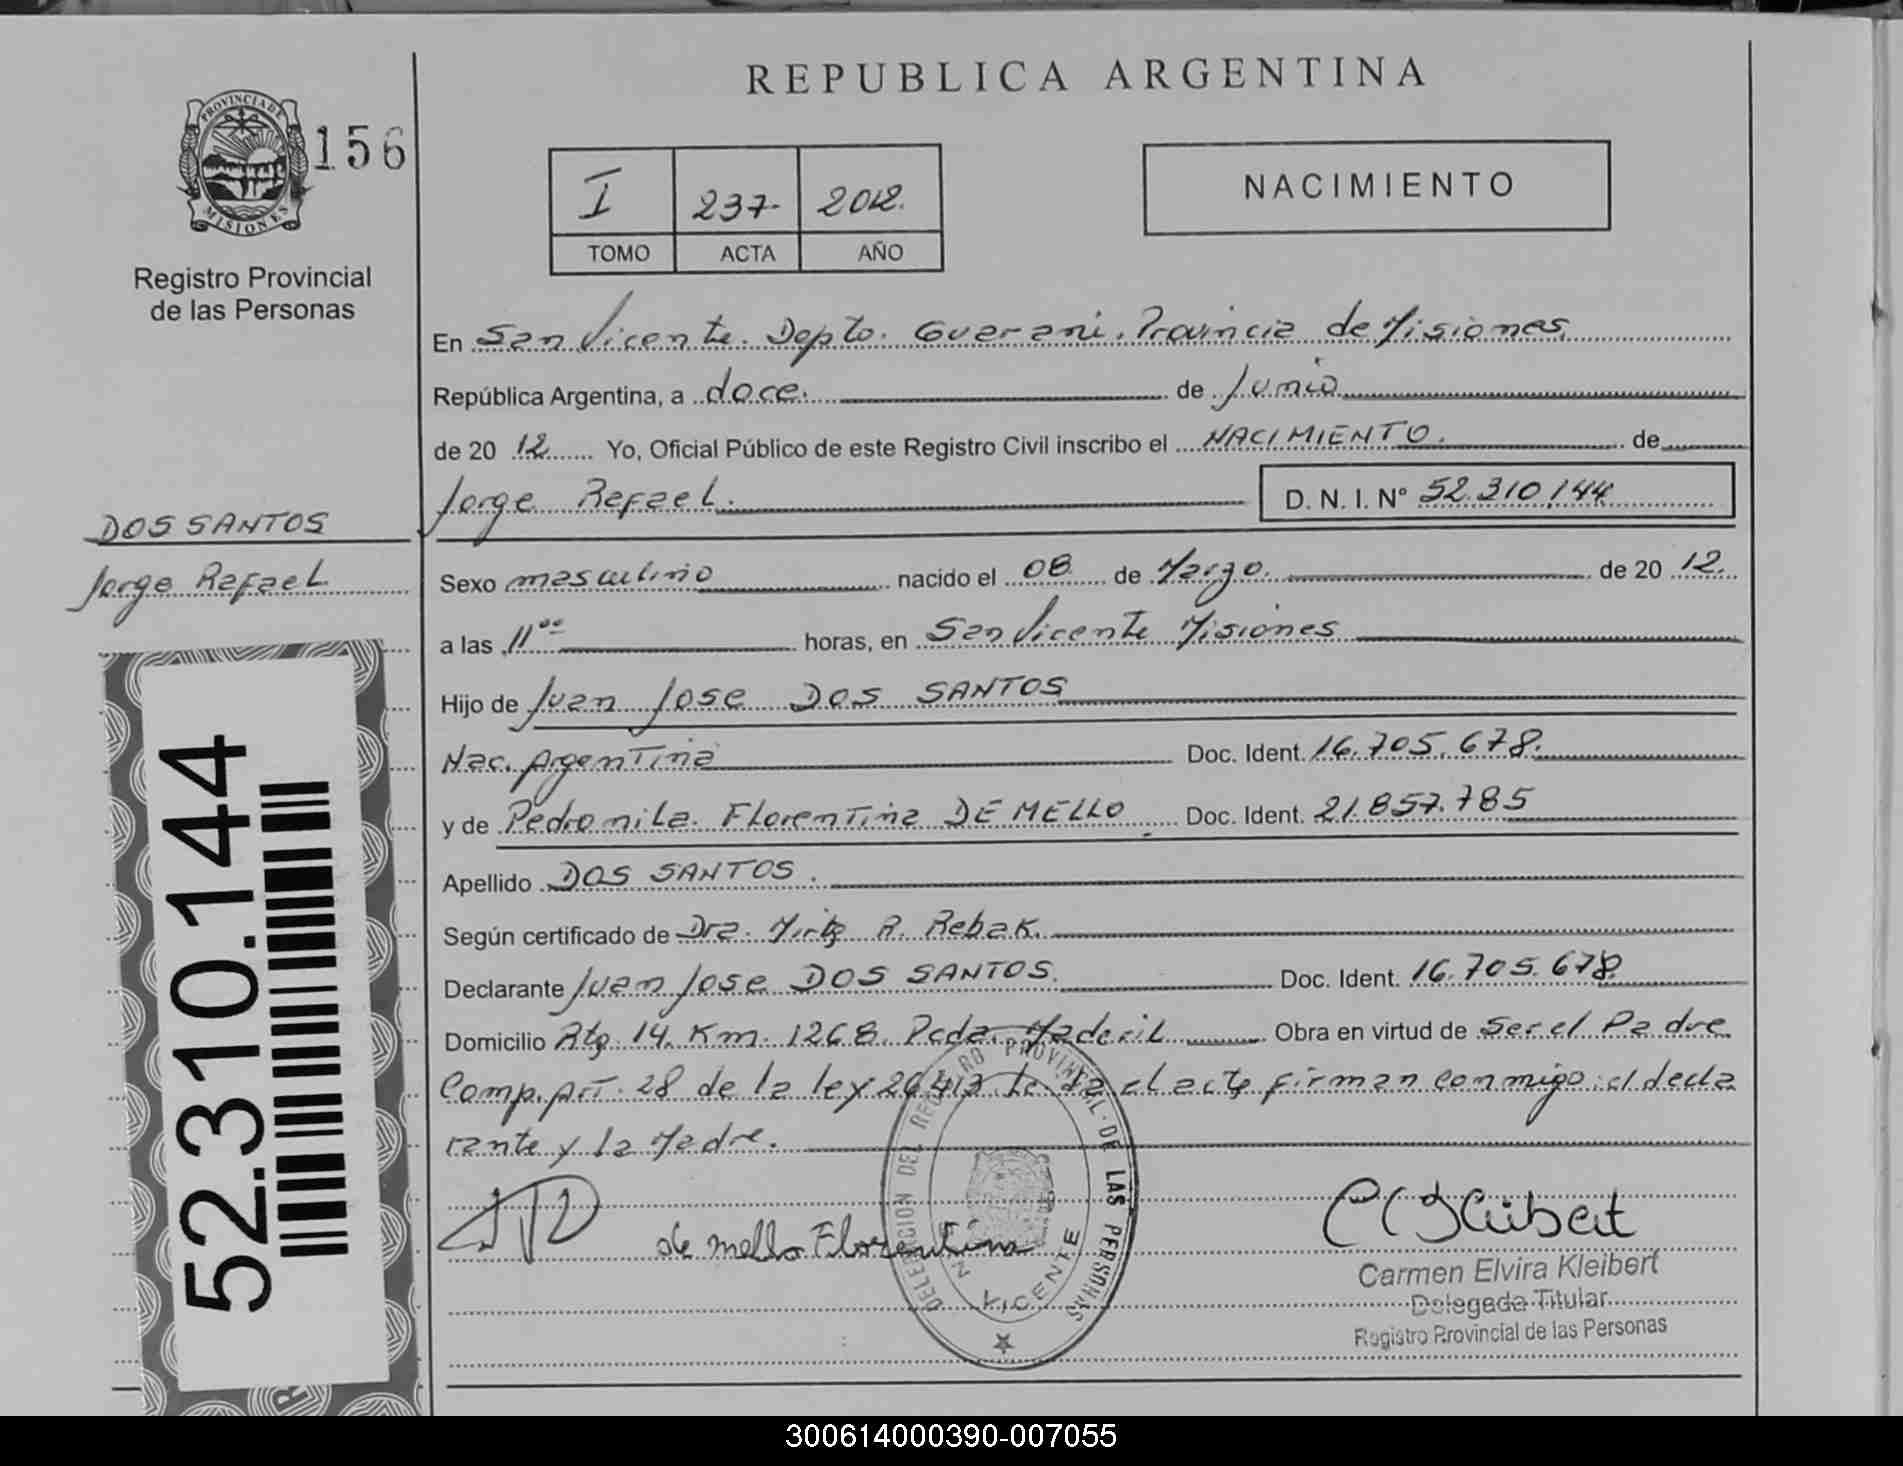 REPUBLICA ARGENTINA
PROVINCIA DE
MISIONES
156
Registro Provincial
de las Personas
I 237- 2012.
TOMO ACTA AÑO
NACIMIENTO
En San Vicente. Depto. Guarani. Provincia de Misiones
República Argentina, a doce. de Junio
de 20 12 Yo, Oficial Público de este Registro Civil inscribo el NACIMIENTO. de
Jorge Rafael. D. N. I. N° 52.310.144
DOS SANTOS
Jorge Rafael
Sexo masculino nacido el 08 de Marzo. de 20 12.
a las 11°° horas, en San Vicente Misiones
Hijo de Juan Jose DOS SANTOS
Nac. Argentina Doc. Ident. 16.705.678.
y de Pedronila Florentina DE MELLO Doc. Ident. 21.857.785
Apellido DOS SANTOS.
Según certificado de Dra. Mirta R. Rebak.
Declarante Juan Jose DOS SANTOS. Doc. Ident. 16.705.678
Domicilio Rta. 14. Km. 1268. Pcda. Maderil Obra en virtud de Ser el Padre
Comp. Art. 28 de la ley 26413 el acta firman conmigo el decla
rante y la Madre.
de mello Florentina
DELEGACION DEL REGISTRO PROVINCIAL DE LAS PERSONAS
VICENTE
C E Kleibert
Carmen Elvira Kleibert
Delegada Titular
Registro Provincial de las Personas
52.310.144
300614000390-007055